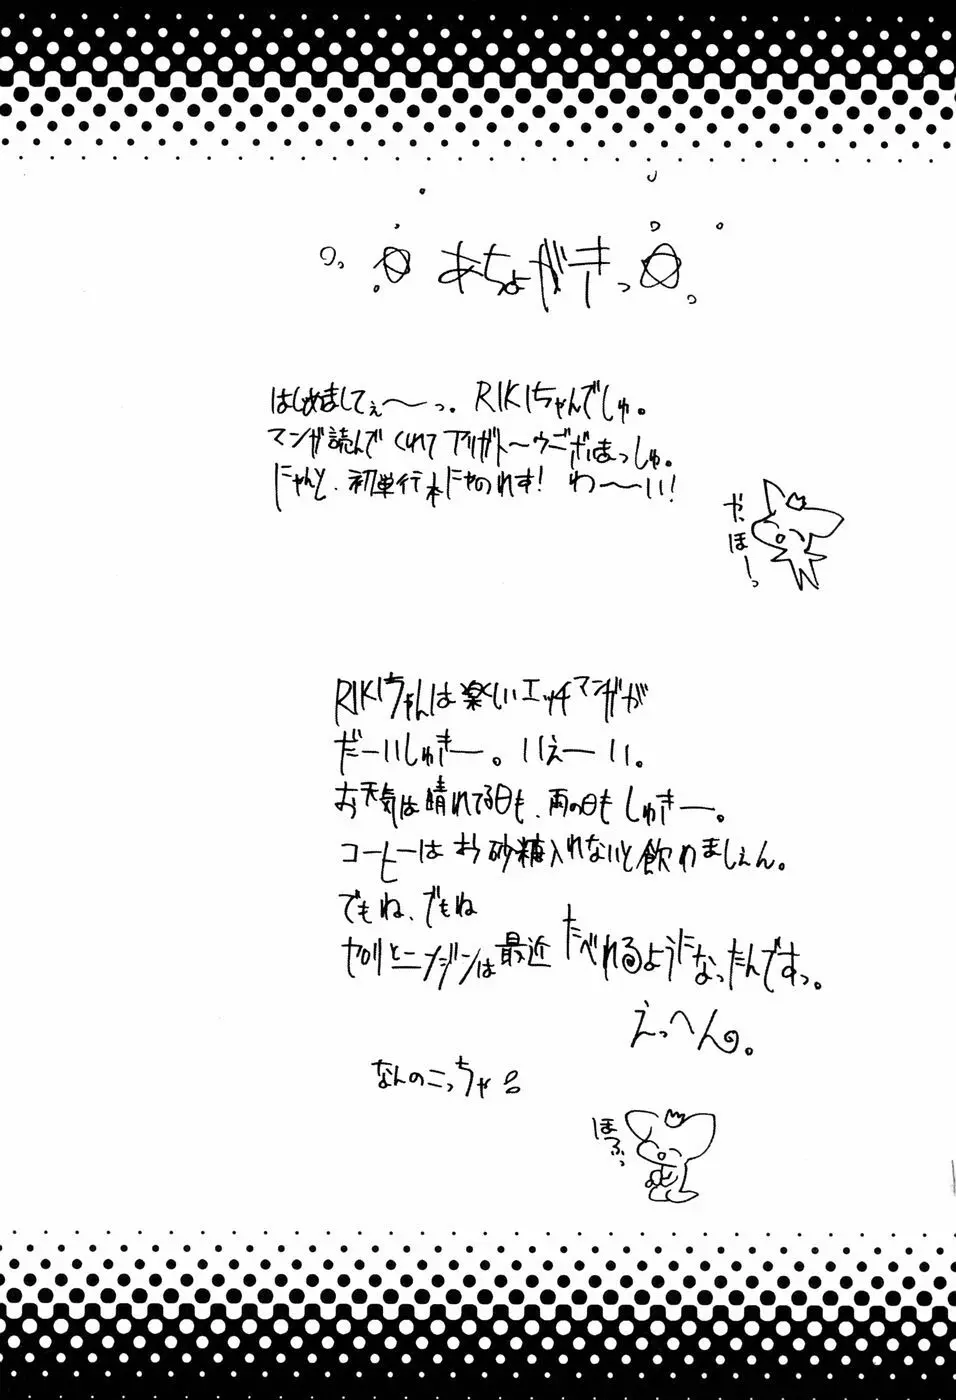 あちょがきっ
はじめましてぇ〜っ。RIKIちゃんでしゅ。
マンガ読んでくれてアリガト〜ウございまっしゅ。
にゃんと、初単行本にゃのれす!わ〜い!
やっほーっ
RIKIちゃんは楽しいエッチマンガが
だーいしゅきー。いぇーい。
お天気は晴れてる日も、雨の日もしゅきー。
コーヒーはお砂糖入れないと飲めましぇん。
でもね、でもね
セロリとニンジンは最近たべれるようになったんですっ。
えっへん。
なんのこっちゃ
ほふっ